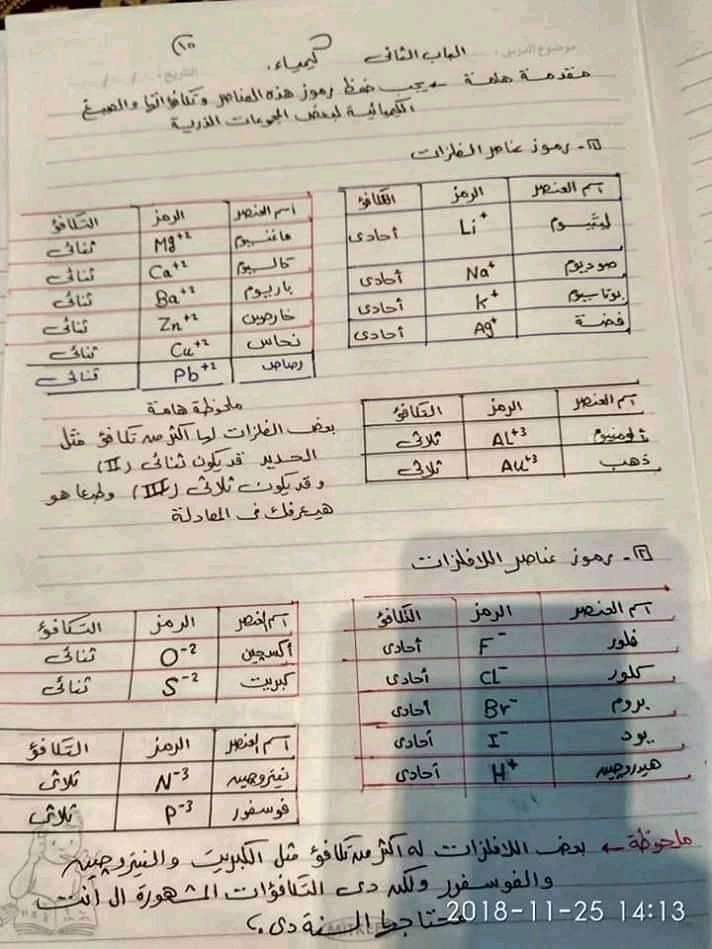 ١٥
موضوع الدرس:
الباب الثانى كيمياء.
التاريخ: / /
مقدمة هامة ← يجب حفظ رموز هذه العناصر وتكافؤاتها والصيغ
الكيميائية لبعض المجموعات الذرية
١- رموز عناصر الفلزات
اسم العنصر الرمز التكافؤ
ليثيوم Li+ أحادى
صوديوم Na+ أحادى
بوتاسيوم K+ أحادى
فضة Ag+ أحادى
اسم العنصر الرمز التكافؤ
ماغنسيوم Mg+2 ثنائى
كالسيوم Ca+2 ثنائى
باريوم Ba+2 ثنائى
خارصين Zn+2 ثنائى
نحاس Cu+2 ثنائى
رصاص Pb+2 ثنائى
اسم العنصر الرمز التكافؤ
ألومنيوم Al+3 ثلاثى
ذهب Au+3 ثلاثى
ملحوظة هامة
بعض الفلزات لها أكثر من تكافؤ مثل
الحديد قد يكون ثنائى (II)
وقد يكون ثلاثى (III) وطبعا هو
هيعرفك فى المعادلة
٢- رموز عناصر اللافلزات
اسم العنصر الرمز التكافؤ
فلور F- أحادى
كلور CL- أحادى
بروم Br- أحادى
يود I- أحادى
هيدروجين H+ أحادى
اسم العنصر الرمز التكافؤ
أكسجين O-2 ثنائى
كبريت S-2 ثنائى
اسم العنصر الرمز التكافؤ
نيتروجين N-3 ثلاثى
فوسفور P-3 ثلاثى
ملحوظة ← بعض اللافلزات له أكثر من تكافؤ مثل الكبريت والنيتروجين
والفوسفور ولكن دى التكافؤات المشهورة ال أنت
محتاجها السنة دى.
2018-11-25 14:13